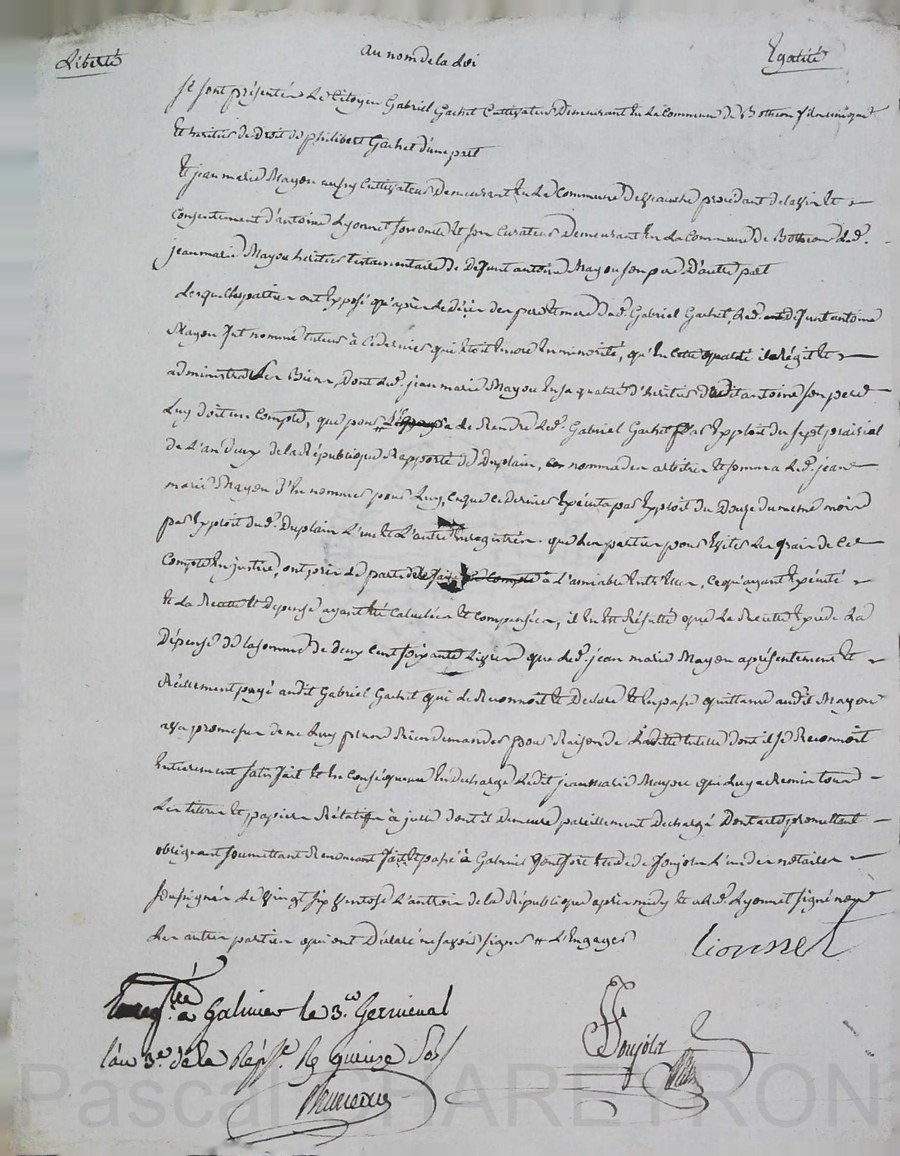 Liberté au nom de la Loi Egalité
se sont présentés Le Citoyen Gabriel Gachet Cultivateur Demeurant En La Commune De Botheon fils unique
Et heritier De Droit de philibert Gachet d'une part
Et jean marie Mayou aussy Cultivateur demeurant En La Commune De procedant de l'avis Et
Consentement d'antoine Lyonnet son oncle Et son Curateur Demeurant En La Commune De Botheon Led.
jean marie Mayou heritier testamentaire De Defunt antoine Mayou son pere D'autre part
Lesquelles parties ont Exposé qu'après Le décès des pere Et mere Dud. Gabriel Gachet, Led. Defunt antoine
Mayou fut nommé tuteur à Ce dernier qui étoit Encore En minorité, qu'En Cette qualité il Régit Et
administra Les Biens, Dont Led. jean marie Mayou En sa qualité D'héritier Dudit antoine son pere
Luy doit un Compte, que pour Le Rendre Led. Gabriel Gachet par Exploit du sept prairial
de L'an deux de la République Rapporté De Duplain, nomma des arbitres Et somma Led. jean
marie Mayou D'En nommer pour Luy, Ce que Ce dernier Exécuta par Exploit du Douze du meme mois
par Exploit dud. Duplain L'un Et L'autre Enregistrés. que Les parties pour Eviter Les frais de Ce
Compte En justice, ont pris Le parti de Le faire à L'amiable Entr'Elles, Ce qu'ayant Exécuté
Et La Recette Et Depense ayant été Calculées Et Compensées, il En Est Résulté que La Recette Excede La
Dépense De la somme De deux Cent soixante Livres que Led. jean marie Mayou a présentement Et
Réellement payé audit Gabriel Gachet qui Le Reconnoit Et Declare Et En passe quittance audit Mayou
avec promesse De ne Luy plus Rien demander pour Raison de Ladite tutelle dont il se Reconnoit
Entierement satisfait Et En Conséquence En decharge Ledit jean marie Mayou qui Luy a Remis tous
Les titres Et papiers Rélatifs à dont il Demeure pareillement Dechargé Dont acte promettant
obligeant soumettant Renonçant fait Et passé à Galmier Etude de Ponjolx L'un des notaires
soussignés Le vingt six Ventose L'an trois de la République après midy Et a Led. Lyonnet signé non
Les autres parties qui ont Déclaré ne savoir signer L'Engagé
Lionnet
Enregtré à Galmier le 3. Germinal
l'an 3e. de la Répque. Rç quinze Sols
Ponjolx
Pascal CHAREYRON